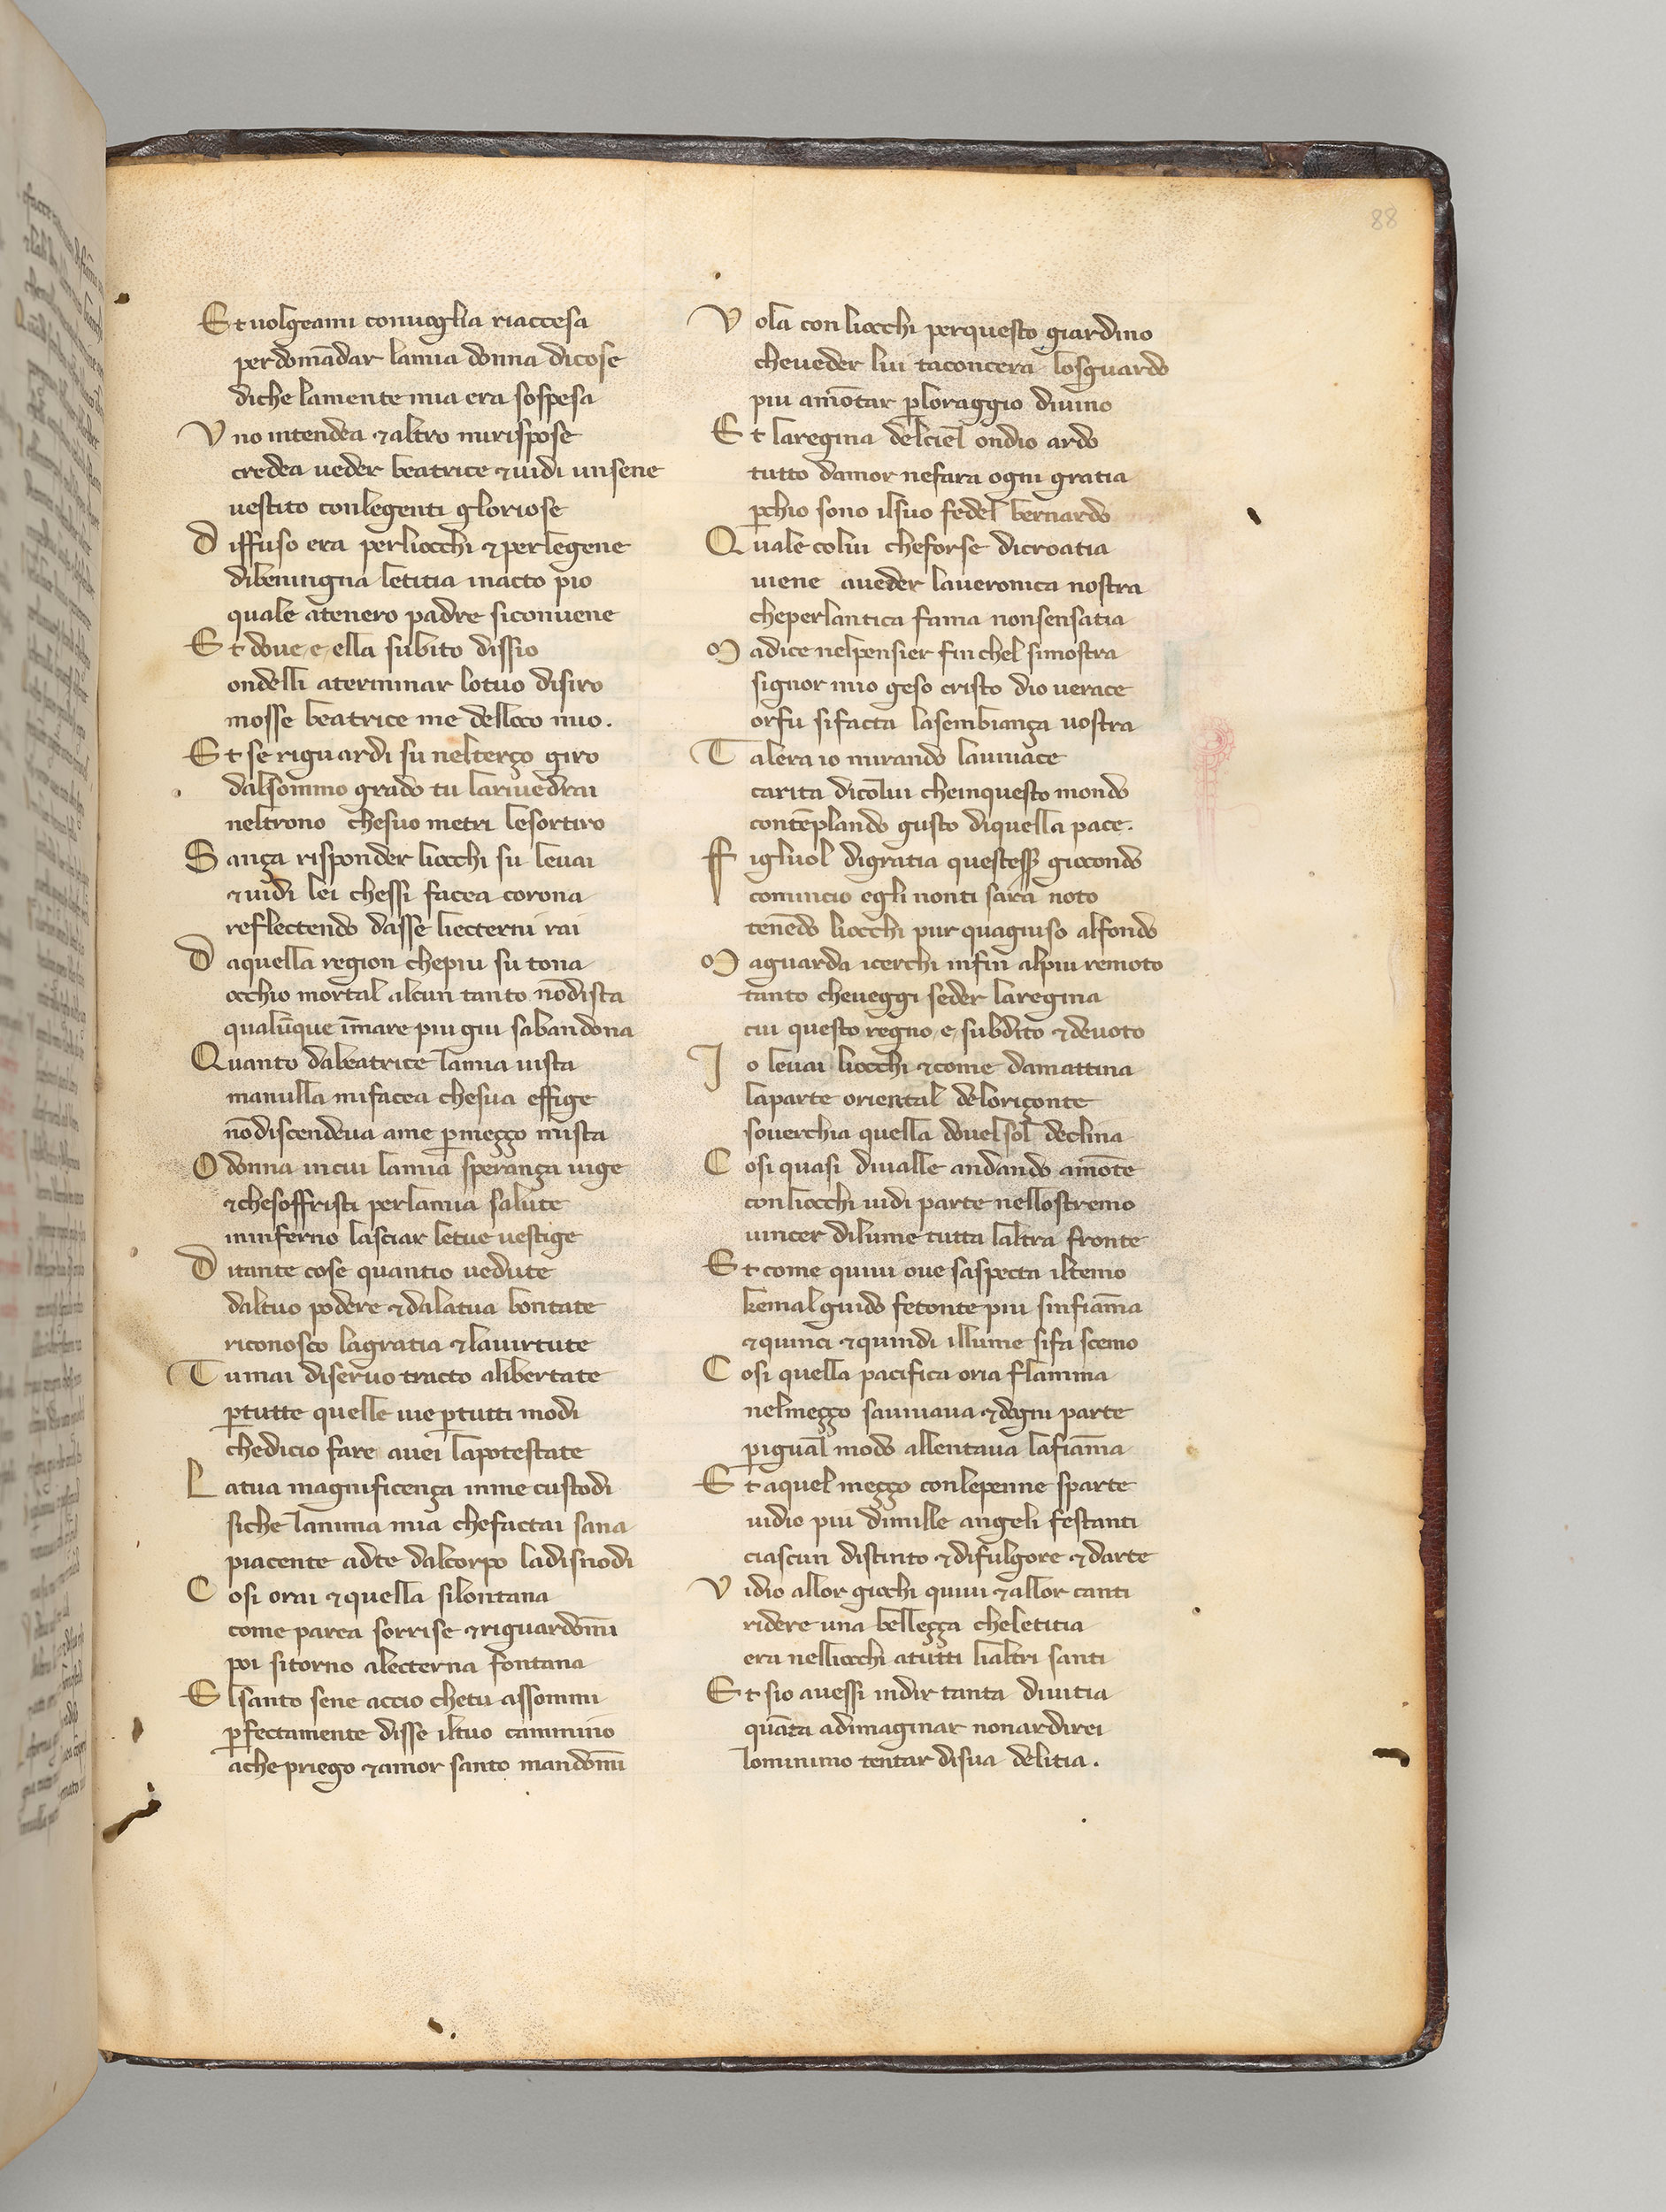 88
Et uolgeami conuoglia riaccesa
perdomādar lamia donna dicose
diche lamente mia era sospesa
Vno intendea ⁊altro mirispose
credea ueder beatrice ⁊uidi unsene
uestito conlegenti gloriose
Diffuso era perliocchi ⁊perlegene
dibeningna letitia inacto pio
quale atenero padre siconuene
Et doue e ella subito dissio
ondelli aterminar lotuo disiro
mosse beatrice me delloco mio.
Et se riguardi su nelterço giro
dalsommo grado tu lariuedrai
neltrono chesuo metri lesortiro
Sança risponder liocchi su leuai
⁊uidi lei chessi facea corona
reflectendo dasse liecterni rai
Daquella region chepiu su tona
occhio mortal alcun tanto nōdista
qualūque īmare piu giu sabandona
Quanto dabeatrice lamia uista
manulla mifacea chesua effige
nōdiscendeua ame ꝑmeggo mista
O donna incui lamia sperança uige
⁊chesoffristi perlamia salute
ininferno lasciar letue uestige
Ditante cose quantio uedute
daltuo podere ⁊dalatua bontate
riconosco lagratia ⁊lauirtute
Tumai diseruo tracto alibertate
ꝑtutte quelle uie ꝑtutti modi
chedicio fare auei lapotestate
Latua magnificença inme custodi
siche lanima mia chefactai sana
piacente adte dalcorpo ladisnodi
Cosi orai ⁊quella silontana
come parea sorrise ⁊riguardōmi
poi sitorno alecterna fontana
Elsanto sene accio chetu assommi
ꝑfectamente disse iltuo cammino
ache priego ⁊amor santo mandōmi
Vola con liocchi perquesto giardino
cheueder lui taconcera losguardo
piu amōtar ꝑloraggio diuino
Et laregina delciel ondio ardo
tutto damor nefara ogni gratia
ꝑchio sono ilsuo fedel bernardo
Quale colui cheforse dicroatia
uiene aueder laueronica nostra
cheperlantica fama nonsensatia
Madice nelpensier fin chel simostra
signor mio geso cristo dio uerace
orfu sifacta lasembiança uostra
Talera io mirando lauiuāce
carita dicolui cheinquesto mondo
contēplando gusto diquella pace.
Figluol digratia questesser giocondo
comincio egli nonti sara noto
tenēdo liocchi pur quagiuso alfondo
Maguarda icerchi infin alpiu remoto
tanto cheueggi seder laregina
cui questo regno e subdito ⁊deuoto
Io leuai liocchi ⁊come damattina
laparte oriental deloriçonte
souerchia quella douelsol declina
Cosi quasi diualle andando amōte
conliocchi uidi parte nellostremo
uincer dilume tutta laltra fronte
Et come quiui oue saspecta iltemo
kemal guido fetonte piu sinfiāma
⁊quinci ⁊quindi illume sifa scemo
Cosi quella pacifica oria flamma
nelmeggo sauiuaua ⁊dogni parte
ꝑigual modo allentaua lafiāma
Et aquel meggo conlepenne sparte
uidio piu dimille angeli festanti
ciascun distinto ⁊difulgore ⁊darte
Vidio allor giochi quiui ⁊allor canti
ridere una bellegga cheletitia
era nelliocchi atutti lialtri santi
Et sio auessi indir tanta diuitia
quāta adimaginar nonardirei
lominimo tentar disua delitia.